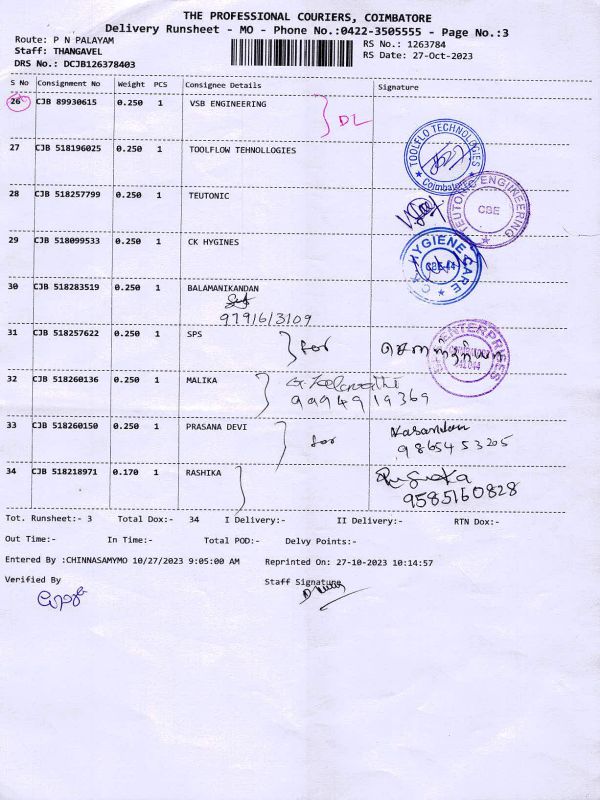 THE PROFESSIONAL COURIERS, COIMBATORE
Delivery Runsheet - MO - Phone No.:0422-3505555 - Page No.:3
Route: P N PALAYAM
Staff: THANGAVEL
DRS No.: DCJB126378403
RS No.: 1263784
RS Date: 27-Oct-2023
S No Consignment No Weight PCS Consignee Details Signature
26 CJB 89930615 0.250 1 VSB ENGINEERING DL
27 CJB 518196025 0.250 1 TOOLFLOW TEHNOLLOGIES
TOOLFLO TECHNOLOGIES
Coimbatore
28 CJB 518257799 0.250 1 TEUTONIC
TEUTONIC ENGINEERING
CBE
29 CJB 518099533 0.250 1 CK HYGINES
HYGIENE CARE
30 CJB 518283519 0.250 1 BALAMANIKANDAN
9791613109
31 CJB 518257622 0.250 1 SPS for
ENTERPRISES
32 CJB 518260136 0.250 1 MALIKA
9994919369
33 CJB 518260150 0.250 1 PRASANA DEVI for
9865453205
34 CJB 518218971 0.170 1 RASHIKA
9585160828
Tot. Runsheet:- 3 Total Dox:- 34 I Delivery:- II Delivery:- RTN Dox:-
Out Time:- In Time:- Total POD:- Delvy Points:-
Entered By :CHINNASAMYMO 10/27/2023 9:05:00 AM Reprinted On: 27-10-2023 10:14:57
Verified By Staff Signature